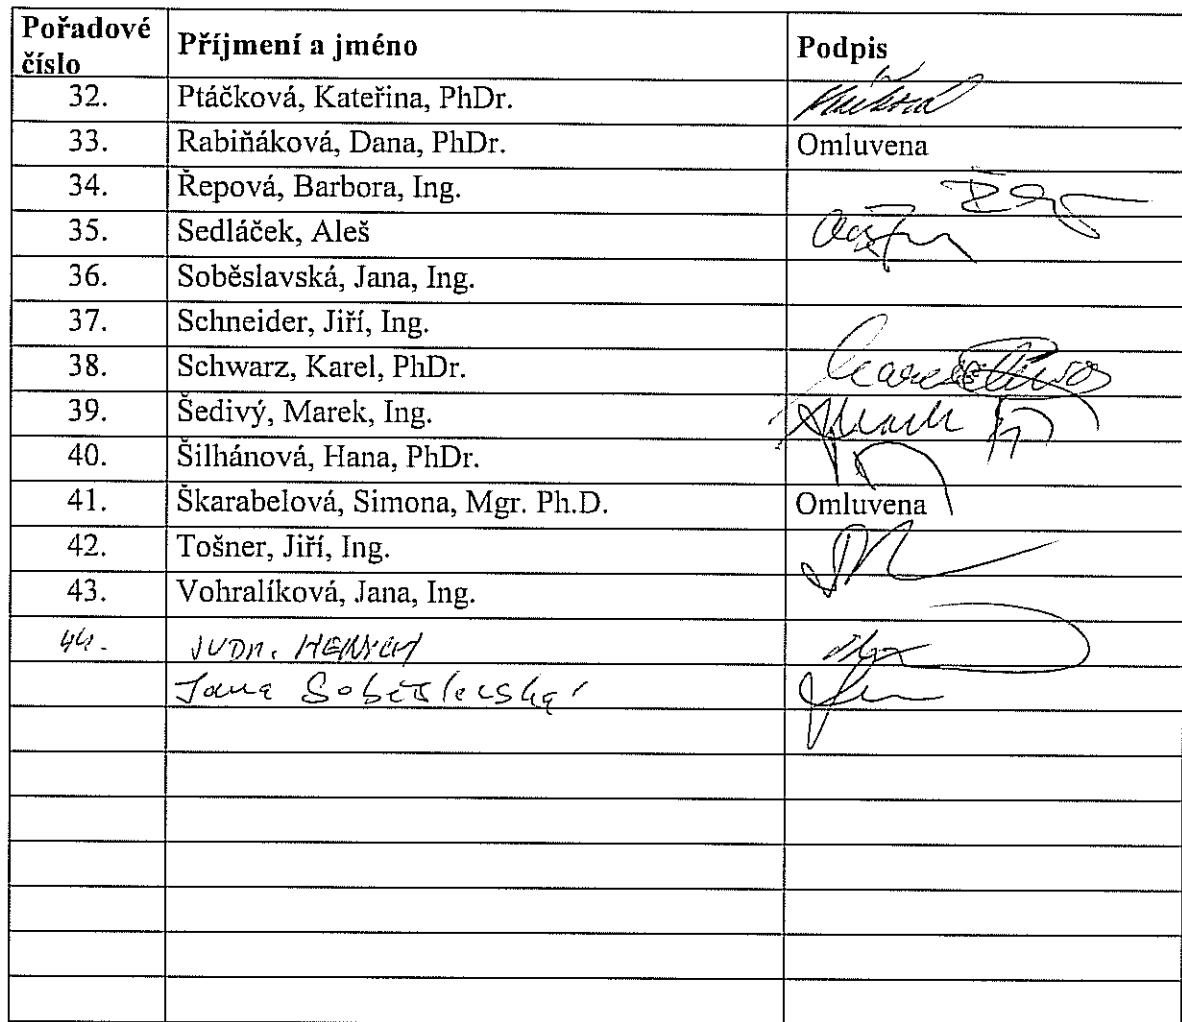 Pořadové číslo Příjmení a jméno Podpis
32. Ptáčková, Kateřina, PhDr.
33. Rabiňáková, Dana, PhDr. Omluvena
34. Řepová, Barbora, Ing.
35. Sedláček, Aleš
36. Soběslavská, Jana, Ing.
37. Schneider, Jiří, Ing.
38. Schwarz, Karel, PhDr.
39. Šedivý, Marek, Ing.
40. Šilhánová, Hana, PhDr.
41. Škarabelová, Simona, Mgr. Ph.D. Omluvena
42. Tošner, Jiří, Ing.
43. Vohralíková, Jana, Ing.
44. JUDr.
Jana Soběslavská